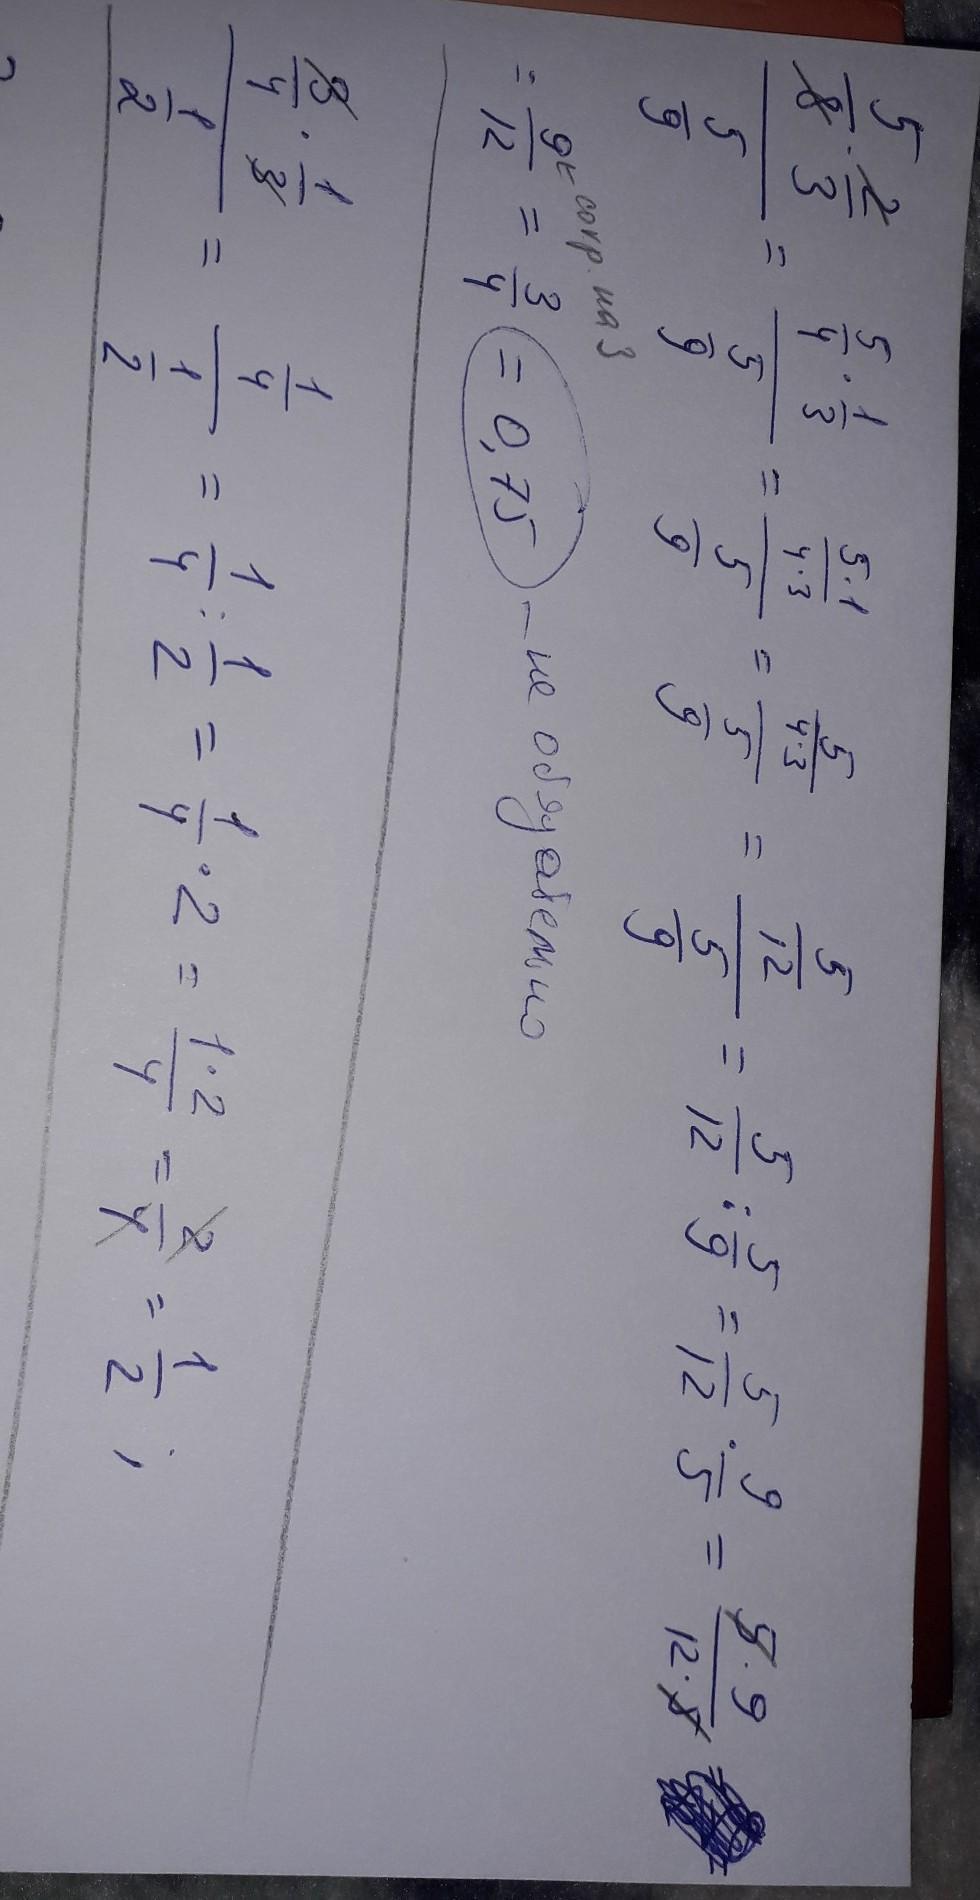 5/8 · 2/3 / 5/9 = 5/4 · 1/3 / 5/9 = 5·1/4·3 / 5/9 = 5/4·3 / 5/9 = 5/12 / 5/9 = 5/12 : 5/9 = 5/12 · 9/5 = 5·9/12·5 =
= 9/12 ← сокр. на 3 = 3/4 = 0,75 — не обязательно
3/4 · 1/3 / 1/2 = 1/4 / 1/2 = 1/4 : 1/2 = 1/4 · 2 = 1·2/4 = 2/4 = 1/2 ;